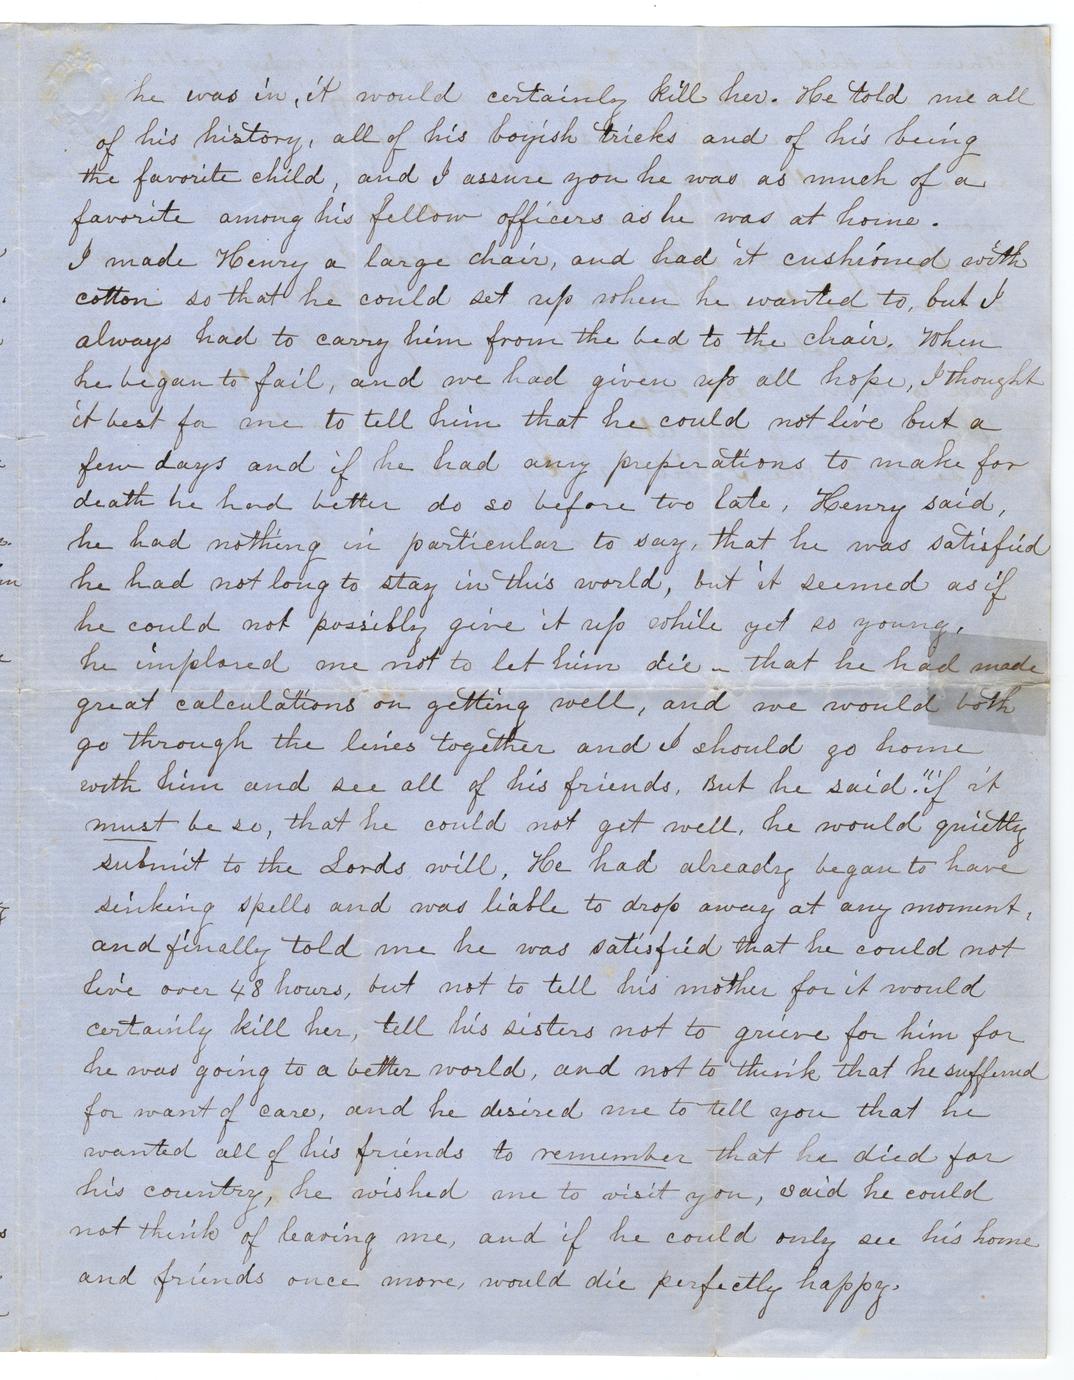 he was in, it would certainly kill her. He told me all
of his history, all of his boyish tricks and of his being
the favorite child, and I assure you he was as much of a
favorite among his fellow officers as he was at home.
I made Henry a large chair, and had it cushioned with
cotton so that he could set up when he wanted to, but I
always had to carry him from the bed to the chair. When
he began to fail, and we had given up all hope, I thought
it best for me to tell him that he could not live but a
few days and if he had any preperations to make for
death he had better do so before too late, Henry said,
he had nothing in particular to say, that he was satisfied
he had not long to stay in this world, but it seemed as if
he could not possibly give it up while yet so young,
he implored me not to let him die – that he had made
great calculations on getting well, and we would both
go through the lines together and I should go home
with him and see all of his friends. But he said "if it
must be so, that he could not get well, he would quietly
submit to the Lords will, He had already began to have
sinking spells and was liable to drop away at any moment,
and finally told me he was satisfied that he could not
live over 48 hours, but not to tell his mother for it would
certainly kill her, tell his sisters not to grieve for him for
he was going to a better world, and not to think that he suffered
for want of care, and he desired me to tell you that he
wanted all of his friends to remember that he died for
his country, he wished me to visit you, said he could
not think of leaving me, and if he could only see his home
and friends once more, would die perfectly happy.